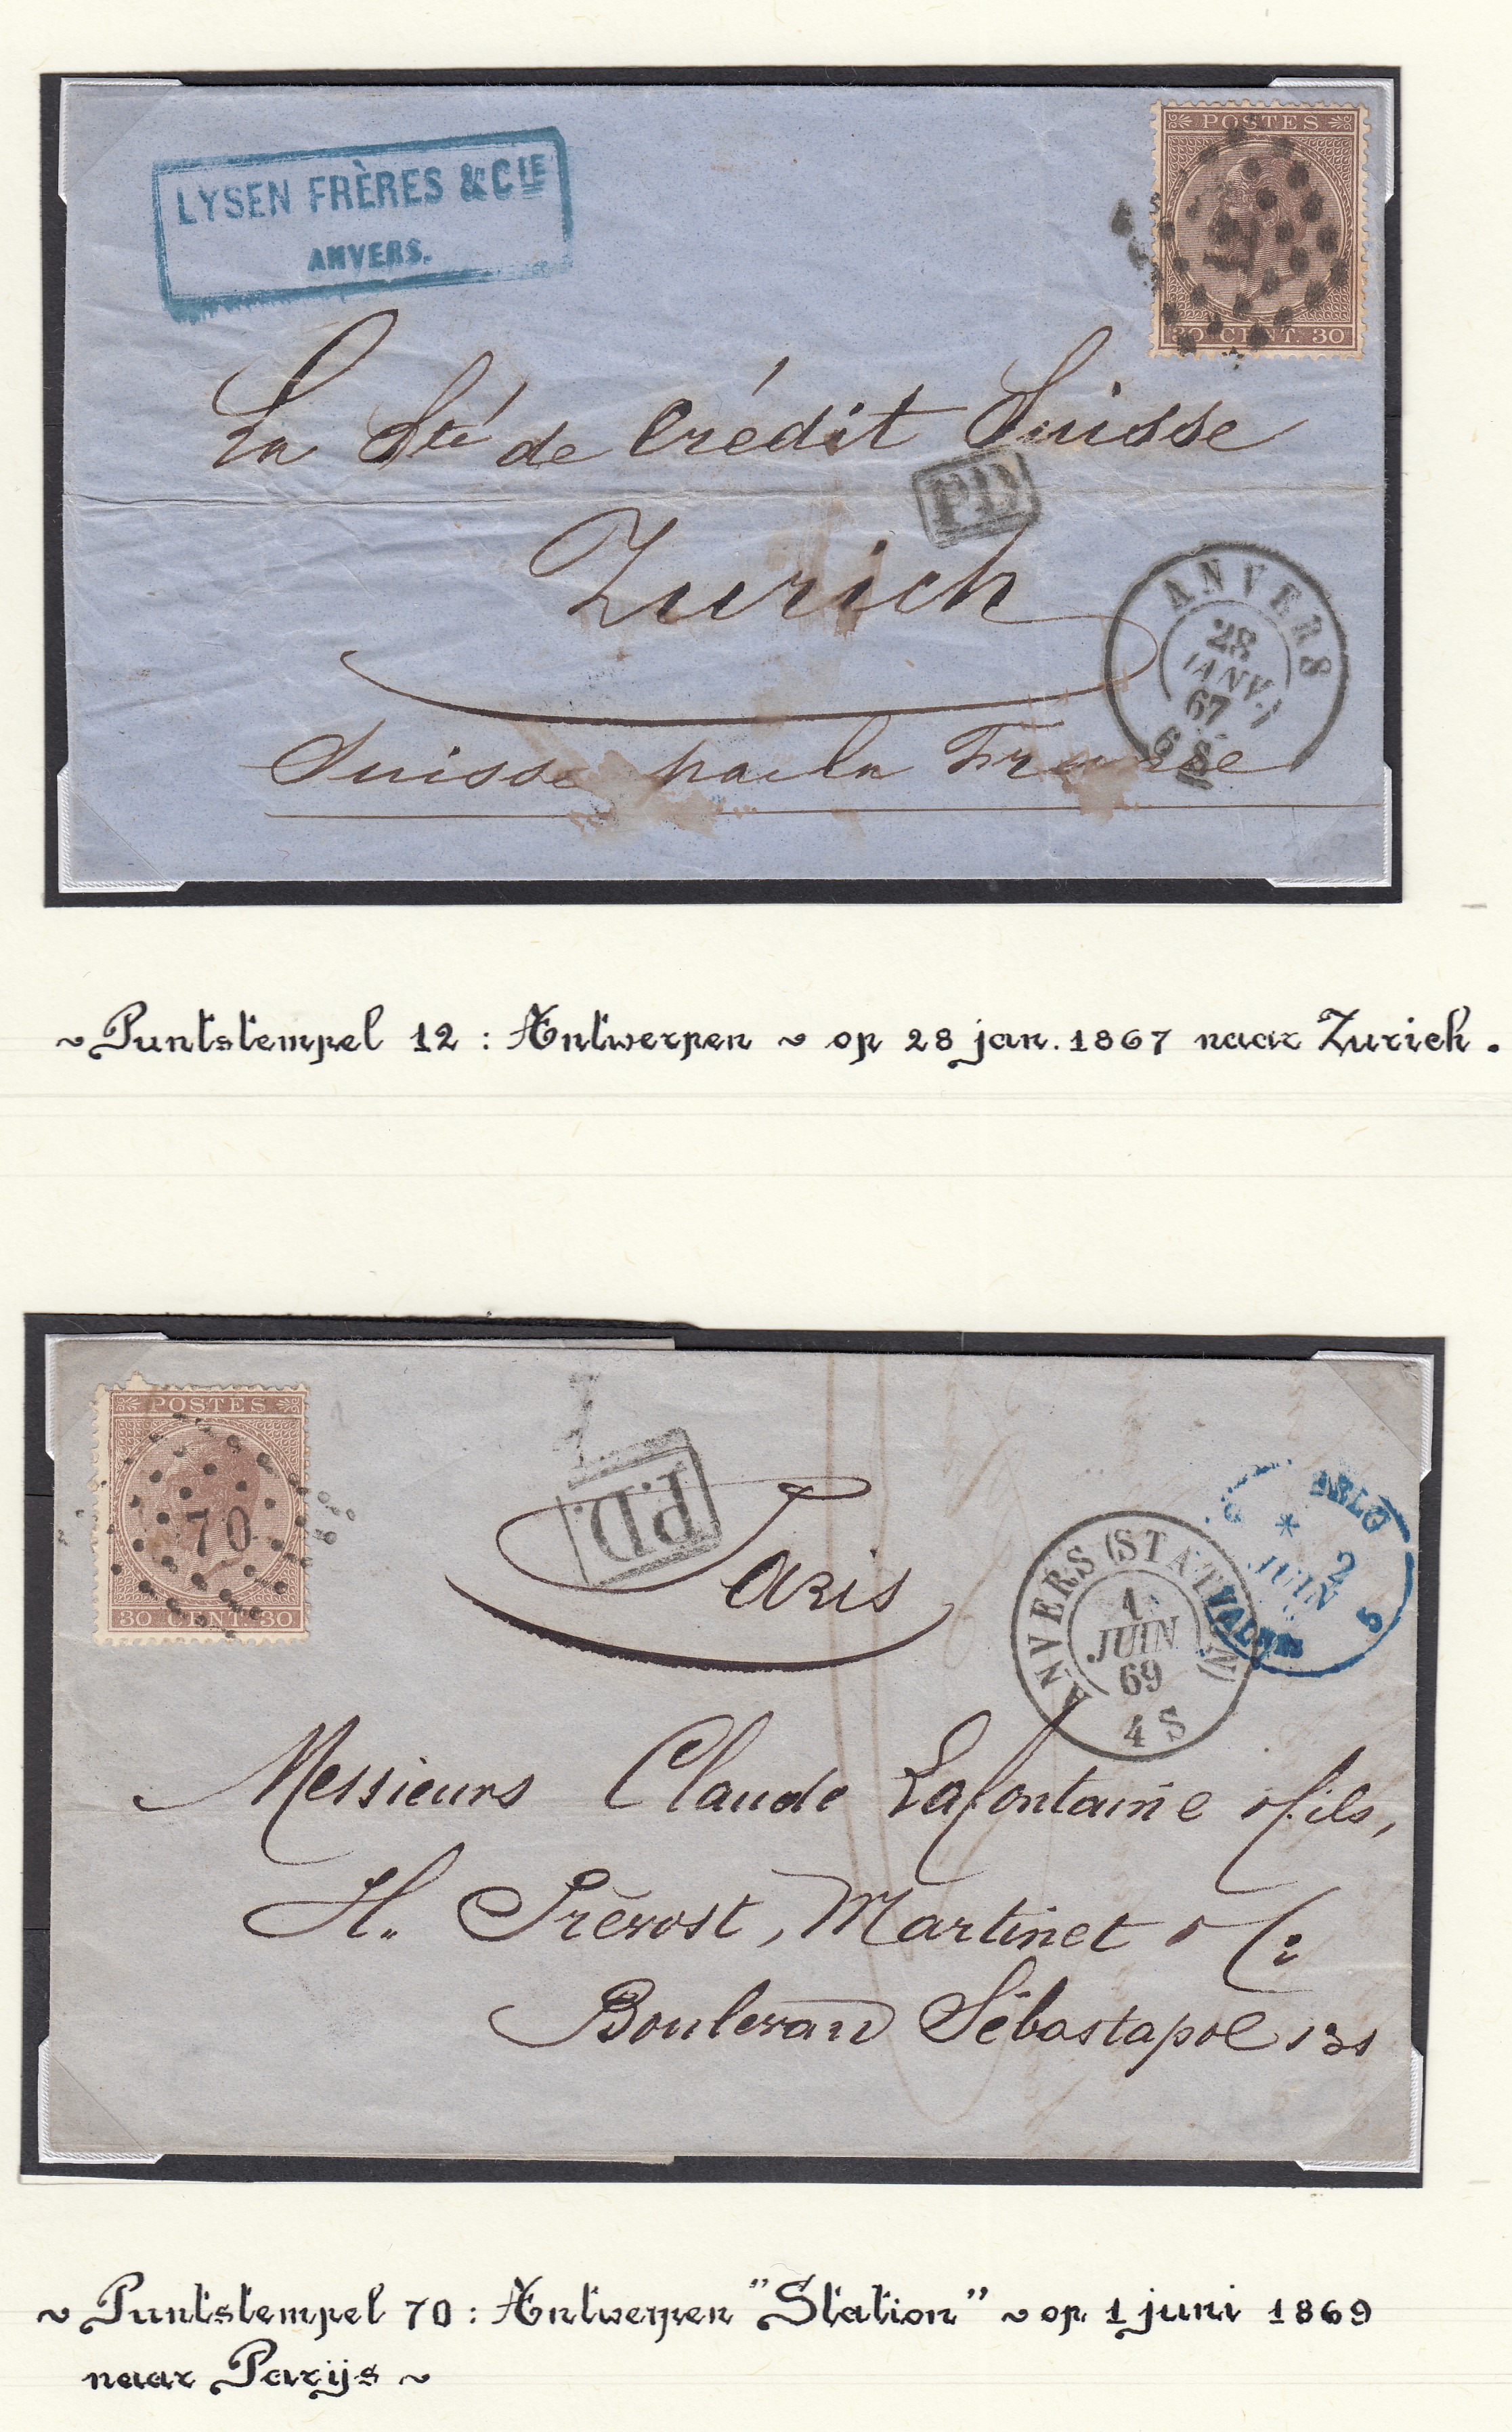 LYSEN FRÈRES & CIE
ANVERS.
POSTES
12
30 CENT. 30
La Sté de Crédit Suisse
PD
Zurich
ANVERS
28
JANV.
67
6 S
Suisse par la France
~ Puntstempel 12 : Antwerpen ~ op 28 jan. 1867 naar Zurich.
POSTES
70
30 CENT. 30
P.D.
Paris
ANVERS (STATION)
1
JUIN
69
4 S
BELG
2
JUIN
5
VALnes
Messieurs Claude Lafontaine fils,
H. Prévost, Martinet & Ci
Boulevard Sébastapol 131
~ Puntstempel 70 : Antwerpen "Station" ~ op 1 juni 1869
naar Parijs ~